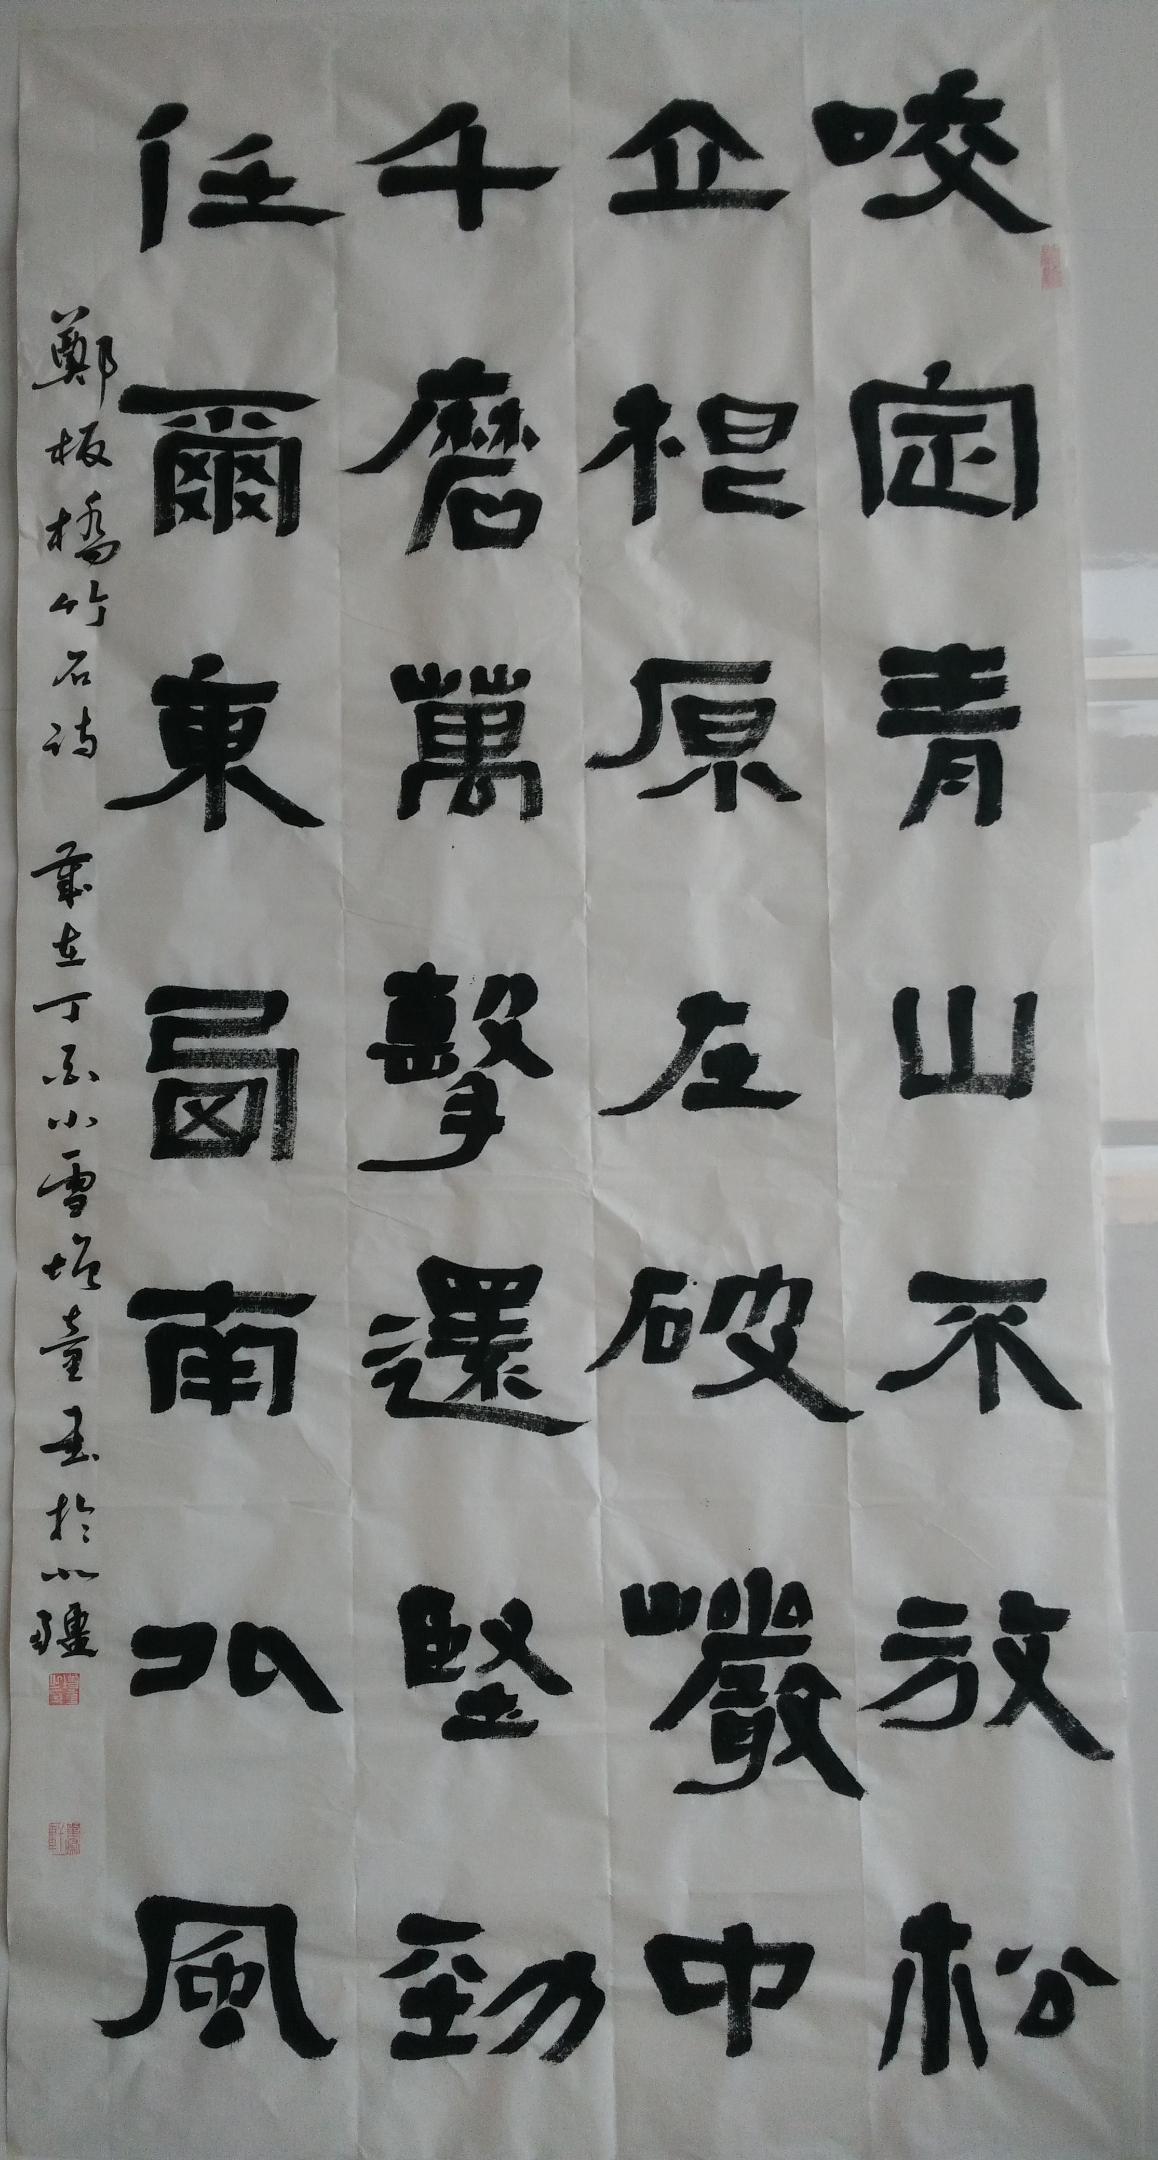 咬定青山不放松
立根原在破巖中
千磨萬擊還堅勁
任爾東西南北風
鄭板橋竹石詩 歲在丁酉小雪 童書於北疆